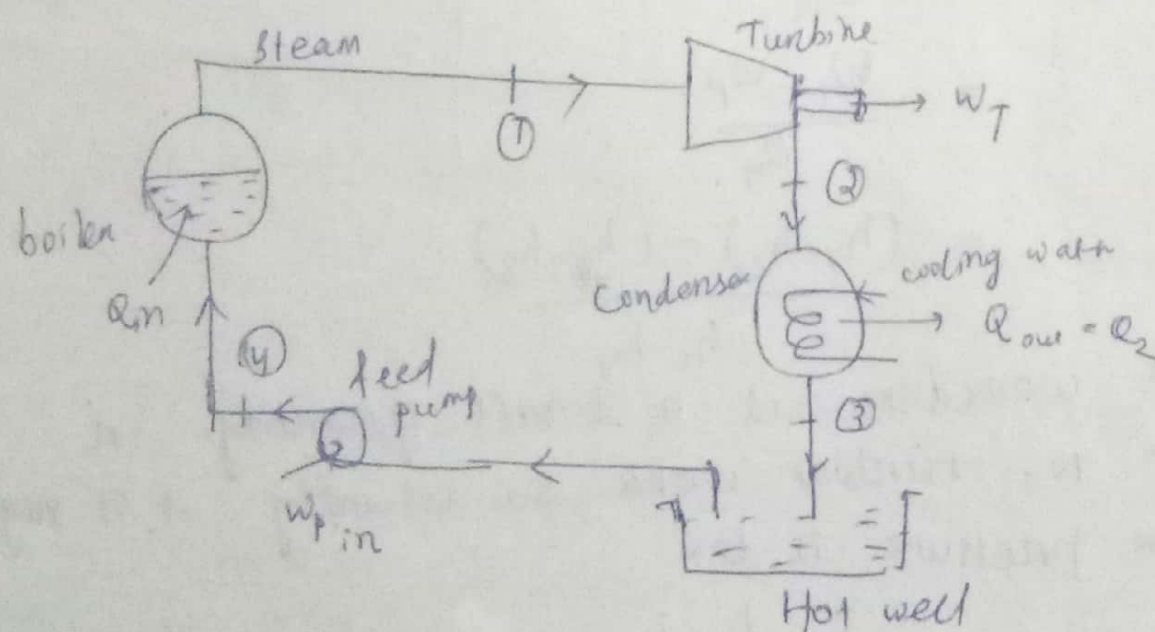 Steam
Turbine
①
W_T
②
boiler
Condenser
cooling water
Q_in
Q_out = Q_2
④
feed
pump
③
W_p in
Hot well